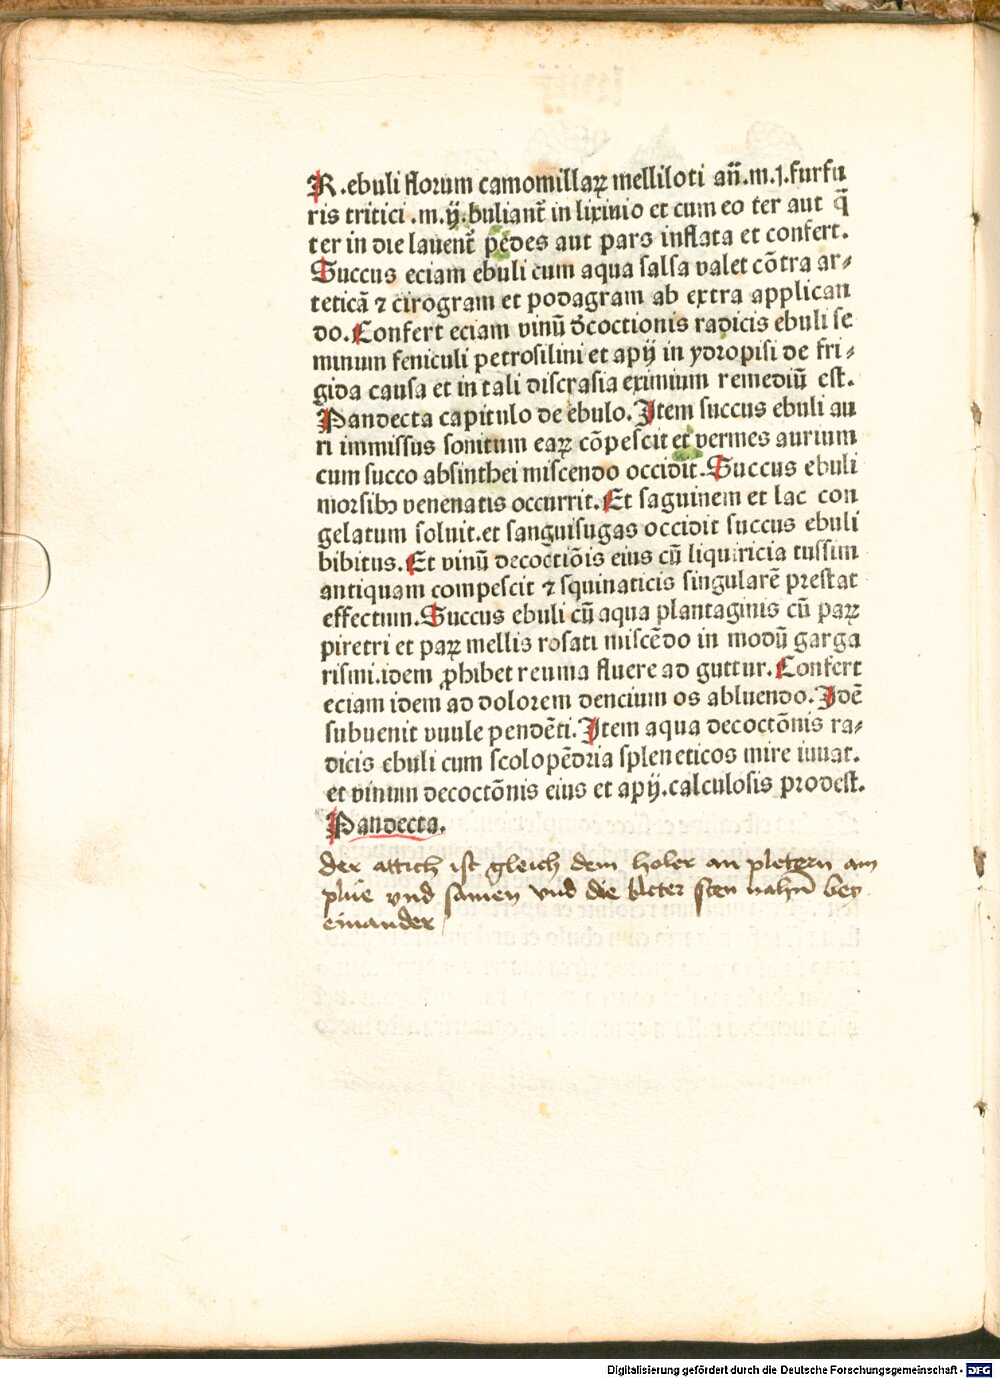 R.ebuli florum camomillaꝝ melliloti añ.m.j.furfu
ris tritici .m.ij.buliant̃ in lixinio et cum eo ter aut q̃
ter in die lauent̃ pedes aut pars inflata et confert.
Succus eciam ebuli cum aqua salsa valet cõtra ar⸗
teticã ⁊ cirogram et podagram ab extra applican
do.Confert eciam vinũ d̃coctionis radicis ebuli se
minum feniculi petrosilini et apij in ydropisi de fri⸗
gida causa et in tali discrasia eximium remediũ est.
Pandecta capitulo de ebulo.Item succus ebuli au
ri immissus sonitum eaꝝ cõpescit et vermes aurium
cum succo absinthei miscendo occidit.Succus ebuli
morsibꝫ venenatis occurrit.Et saguinem et lac con
gelatum soluit.et sanguisugas occidit succus ebuli
bibitus.Et vinũ decoctiõis eius cũ liquiricia tussim
antiquam compescit ⁊ squinaticis singularẽ prestat
effectum.Succus ebuli cũ aqua plantaginis cũ paꝝ
piretri et paꝝ mellis rosati miscẽdo in modũ garga
rismi.idem ꝓhibet reuma fluere ad guttur.Confert
eciam idem ad dolorem dencium os abluendo.Idẽ
subuenit vuule pendẽti.Item aqua decoctõnis ra⸗
dicis ebuli cum scolopẽdria spleneticos mire iuuat.
et vinum decoctõnis eius et apij.calculosis prodest.
Pandecta.
der attich ist gleich dem holer an pletern am
plüe vnd samen vnd die kleter sten nahñ bey
einander
Digitalisierung gefördert durch die Deutsche Forschungsgemeinschaft - DFG